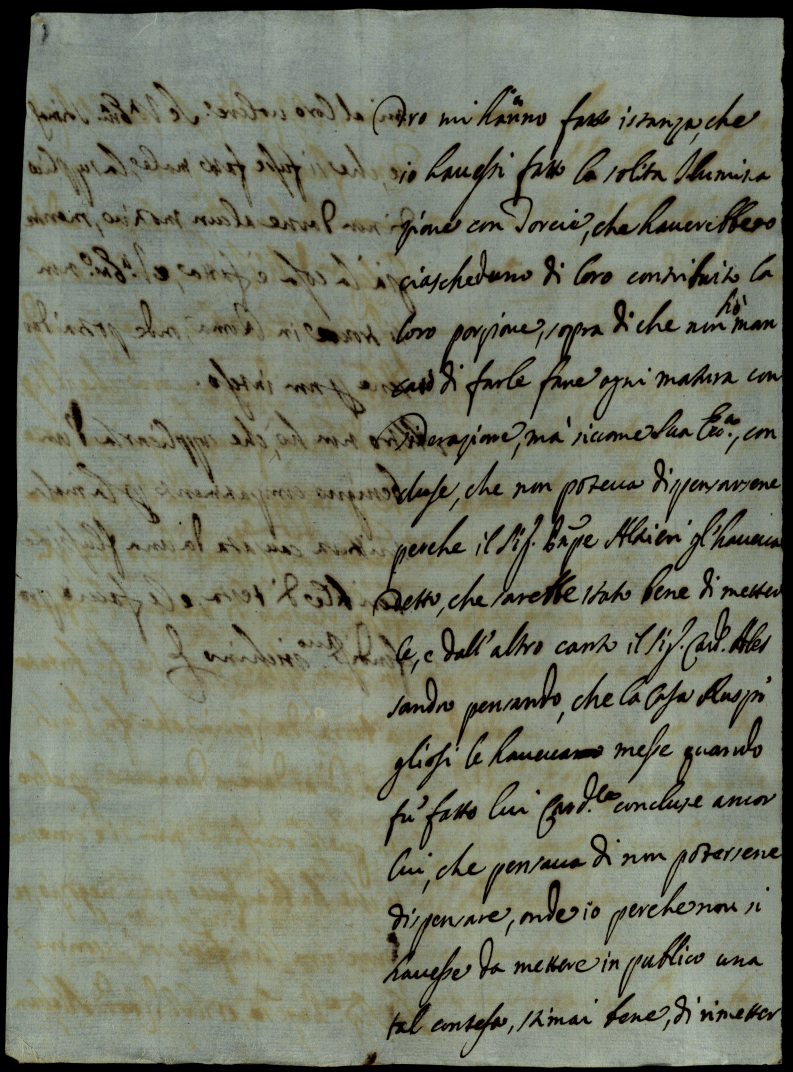 Dro mi hãnno fatto istanza, che
io havessi fatto la solita Illumina
zione con Torcie, che haverebbero
ciascheduno di loro contribuito la
loro porzione, sopra di che non hò man
cato di farle fare ogni matura con
siderazione, mà siccome Sua Ecc.ª, con
cluse, che non poteva dispensarsene
perche il Sig. Prñpe Altieri gl'haveva
detto, che sarebbe stato bene di metter
le, e dall'altro canto il Sig. Card. Ales
sandro pensando, che la Casa Ruspi
gliosi le haveva messe quando
fu' fatto lui Card.le concluse ancor
lui, che pensava di non potersene
dispensare, onde io perche non si
havesse da mettere in publico una
tal contesa, stimai bene, di rimetter